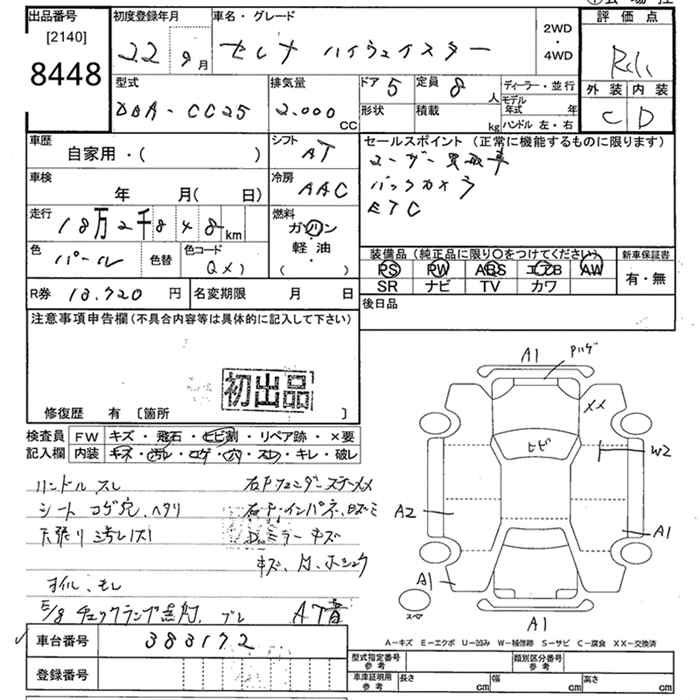 出品番号 初度登録年月 車名・グレード 評価点
[2140]
8448
22 9月 セレナ ハイウェイスター 2WD・4WD
型式 排気量 ドア 5 定員 8人 ディーラー・並行 外装 内装
DBA-CC25 2.000cc 形状 積載 kg モデル年式 年 C D
ハンドル 左・右
車歴 シフト セールスポイント (正常に機能するものに限ります)
自家用・( ) AT ユーザー買取車
車検 冷房 バックカメラ
年 月( 日) AAC ETC
走行 燃料
18万2千848km ガソリン
軽油
( ・ )
色 パール 色替 色コード QX1 装備品 (純正品に限り○をつけてください) 新車保証書
PS PW ABS エアB AW 有・無
SR ナビ TV カワ
R券 13.720円 名変期限 月 日 後日品
注意事項申告欄(不具合内容等は具体的に記入して下さい)
初出品
修復歴 有 [箇所 ]
検査員 FW キズ・飛石・ヒビ割・リペア跡・×要
記入欄 内装 キズ・汚レ・コゲ・穴・スレ・キレ・破レ
ハンドル スレ
シート コゲ穴、ヘタリ
天張り 汚レ
Dミラー キズ
オイル、モレ
E/g チェックランプ点灯 ブレ AT音
車台番号 383172
登録番号
A1
ハゲ
XX
ヒビ
W2
A2
A1
A1
スペア
A1
A-キズ E-エクボ U-凹み W-補修跡 S-サビ C-腐食 XX-交換済
型式指定番号 参考 類別区分番号 参考
車庫証明用 参考 長さ cm 幅 cm 高さ cm